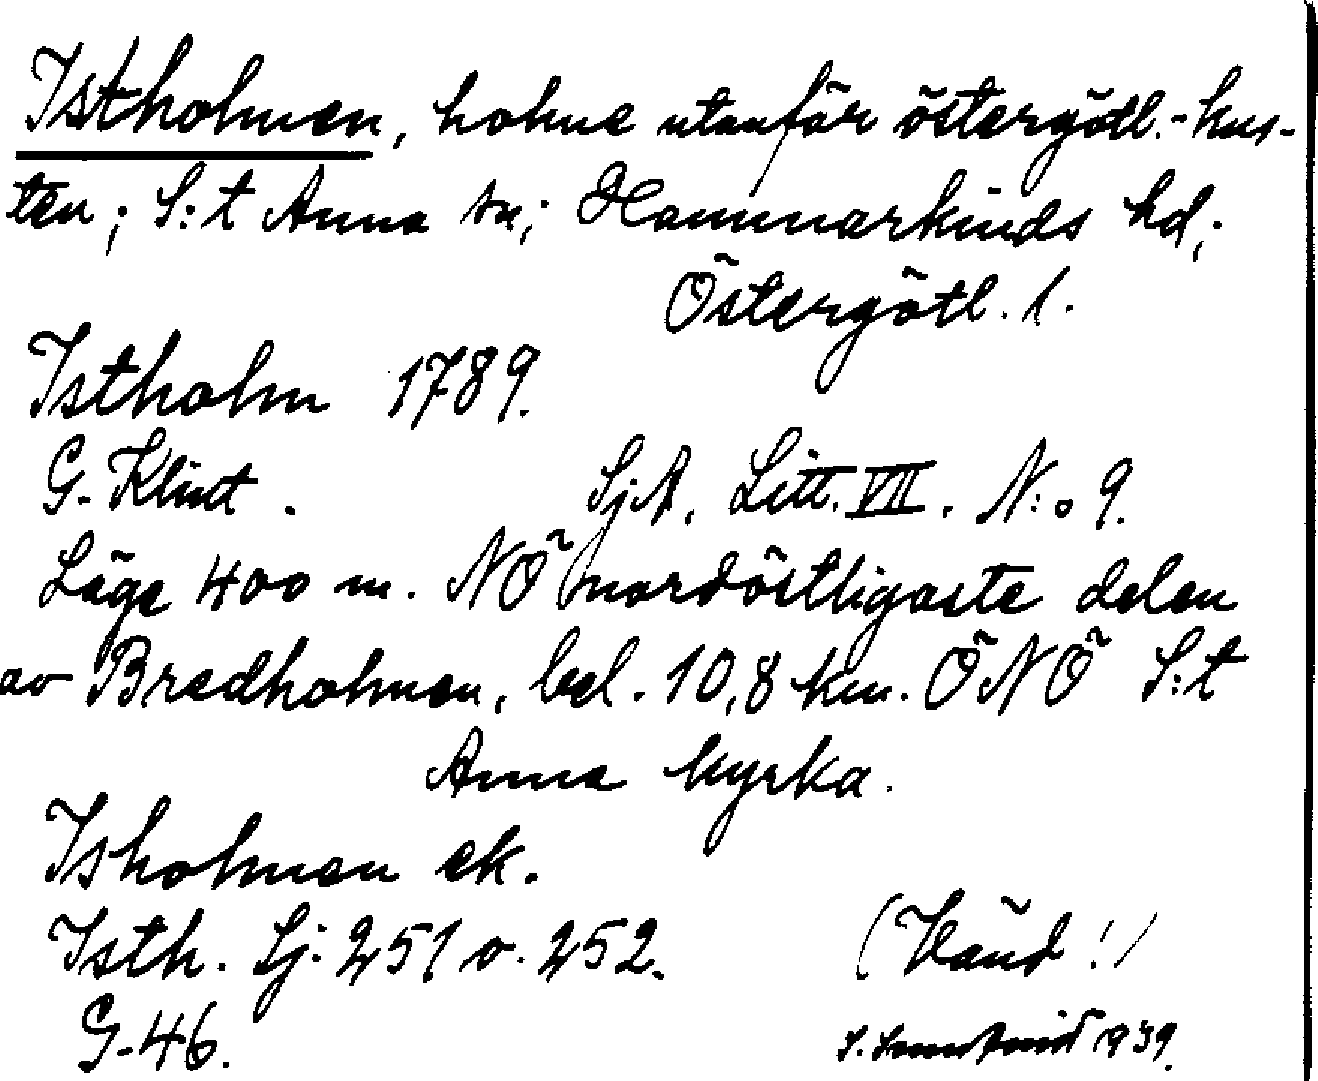 Istholmen, holme utanför östergötl.-kus-
ten; S:t Anna sn; Hammarkinds hd;
Östergötl. l.
Istholm 1789.
G. Klint. SjA, Litt. VII. N:o 9.
Läge 400 m. NÖ nordöstligaste delen
av Bredholmen, bel. 10,8 km. ÖNÖ S:t
Anna kyrka.
Isholmen ek.
Isth. Sj. 251 o. 252.
(Vänd!)
G-46.
1939.